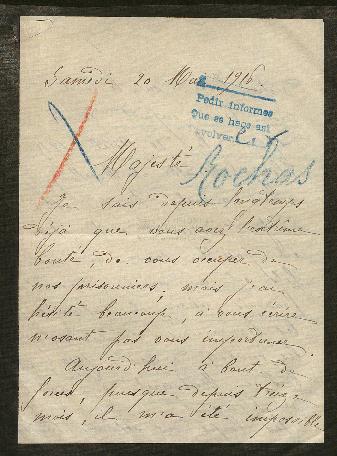 Samedi 20 Mai 1916
Pedir informes
Que se haga así
volver
Majesté
Rochas
Je sais depuis longtemps
déjà que vous avez l'extrême
bonté, de vous occuper de
nos prisonniers; mais j'ai
hésité beaucoup, à vous écrire
n'osant pas vous importuner.
Aujourd'hui à bout de
forces, puisque depuis treize
mois, il m'a été impossible